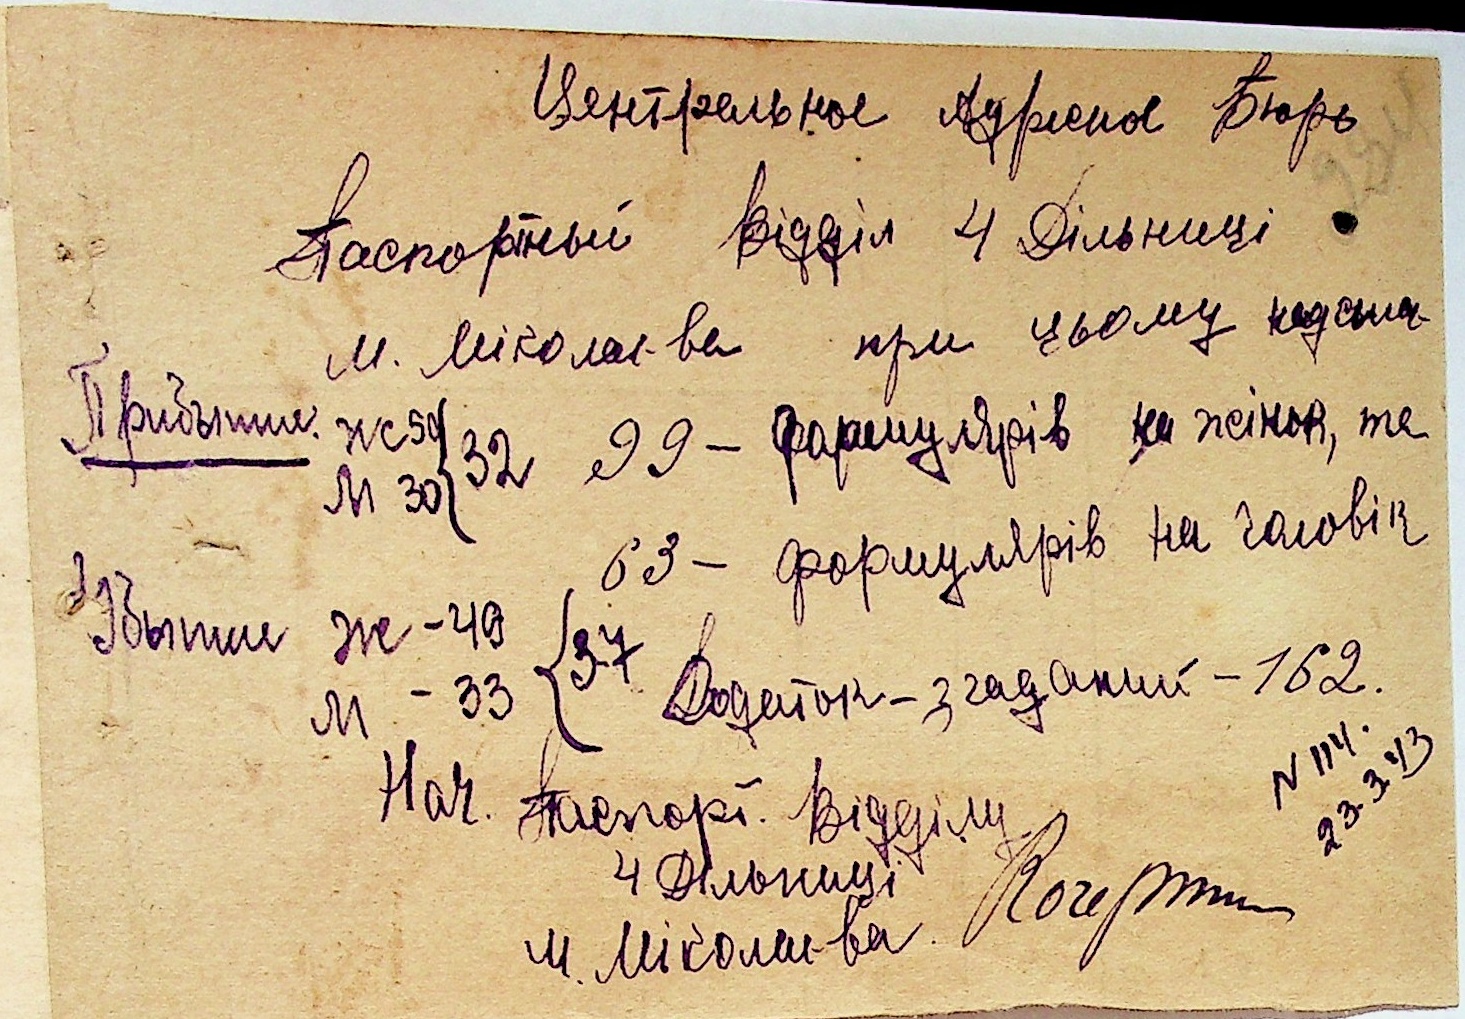 Центральное Адресное Бюрь
Паспортный Відділ 4 Дільниці
м. Міколаєва при цьому надсила
Прибытие. Ж 59 } 32 99 – формулярів на жінок, та
М 30
63 – формулярів на чоловік
Убытие Ж – 49 } 37
М – 33 Додаток – згаданий – 162.
N 114.
23.3.43
Нач. Паспорт. Відділу
4 Дільниці
м. Міколаєва.